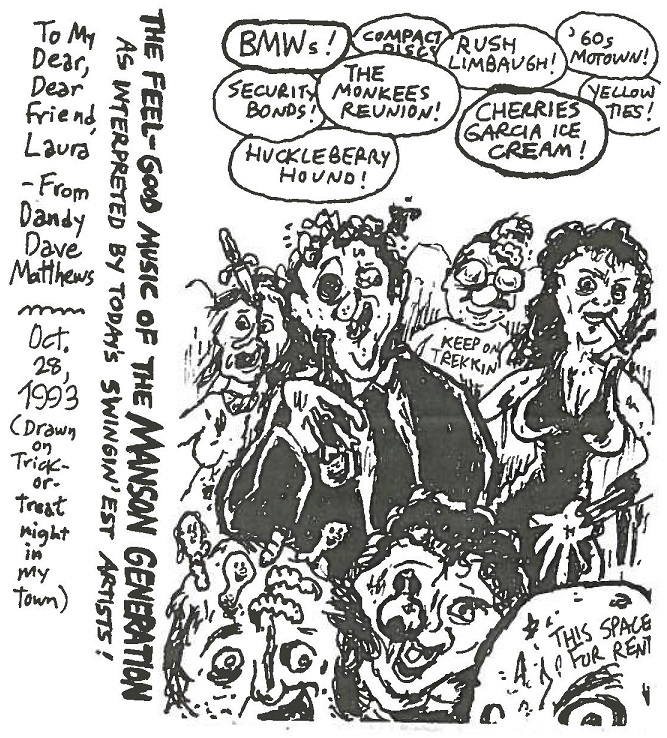 To My
Dear,
Dear
Friend,
Laura
- From
Dandy
Dave
Matthews
Oct.
28,
1993
(Drawn
on
Trick-
or-
treat
night
in
my
town)
THE FEEL-GOOD MUSIC OF THE MANSON GENERATION
AS INTERPRETED BY TODAY'S SWINGIN'EST ARTISTS!
BMWs!
COMPACT
DISCS
RUSH
LIMBAUGH!
'60s
MOTOWN!
SECURITY
BONDS!
THE
MONKEES
REUNION!
CHERRIES
GARCIA ICE
CREAM!
YELLOW
TIES!
HUCKLEBERRY
HOUND!
KEEP ON
TREKKIN'
THIS SPACE
FOR RENT